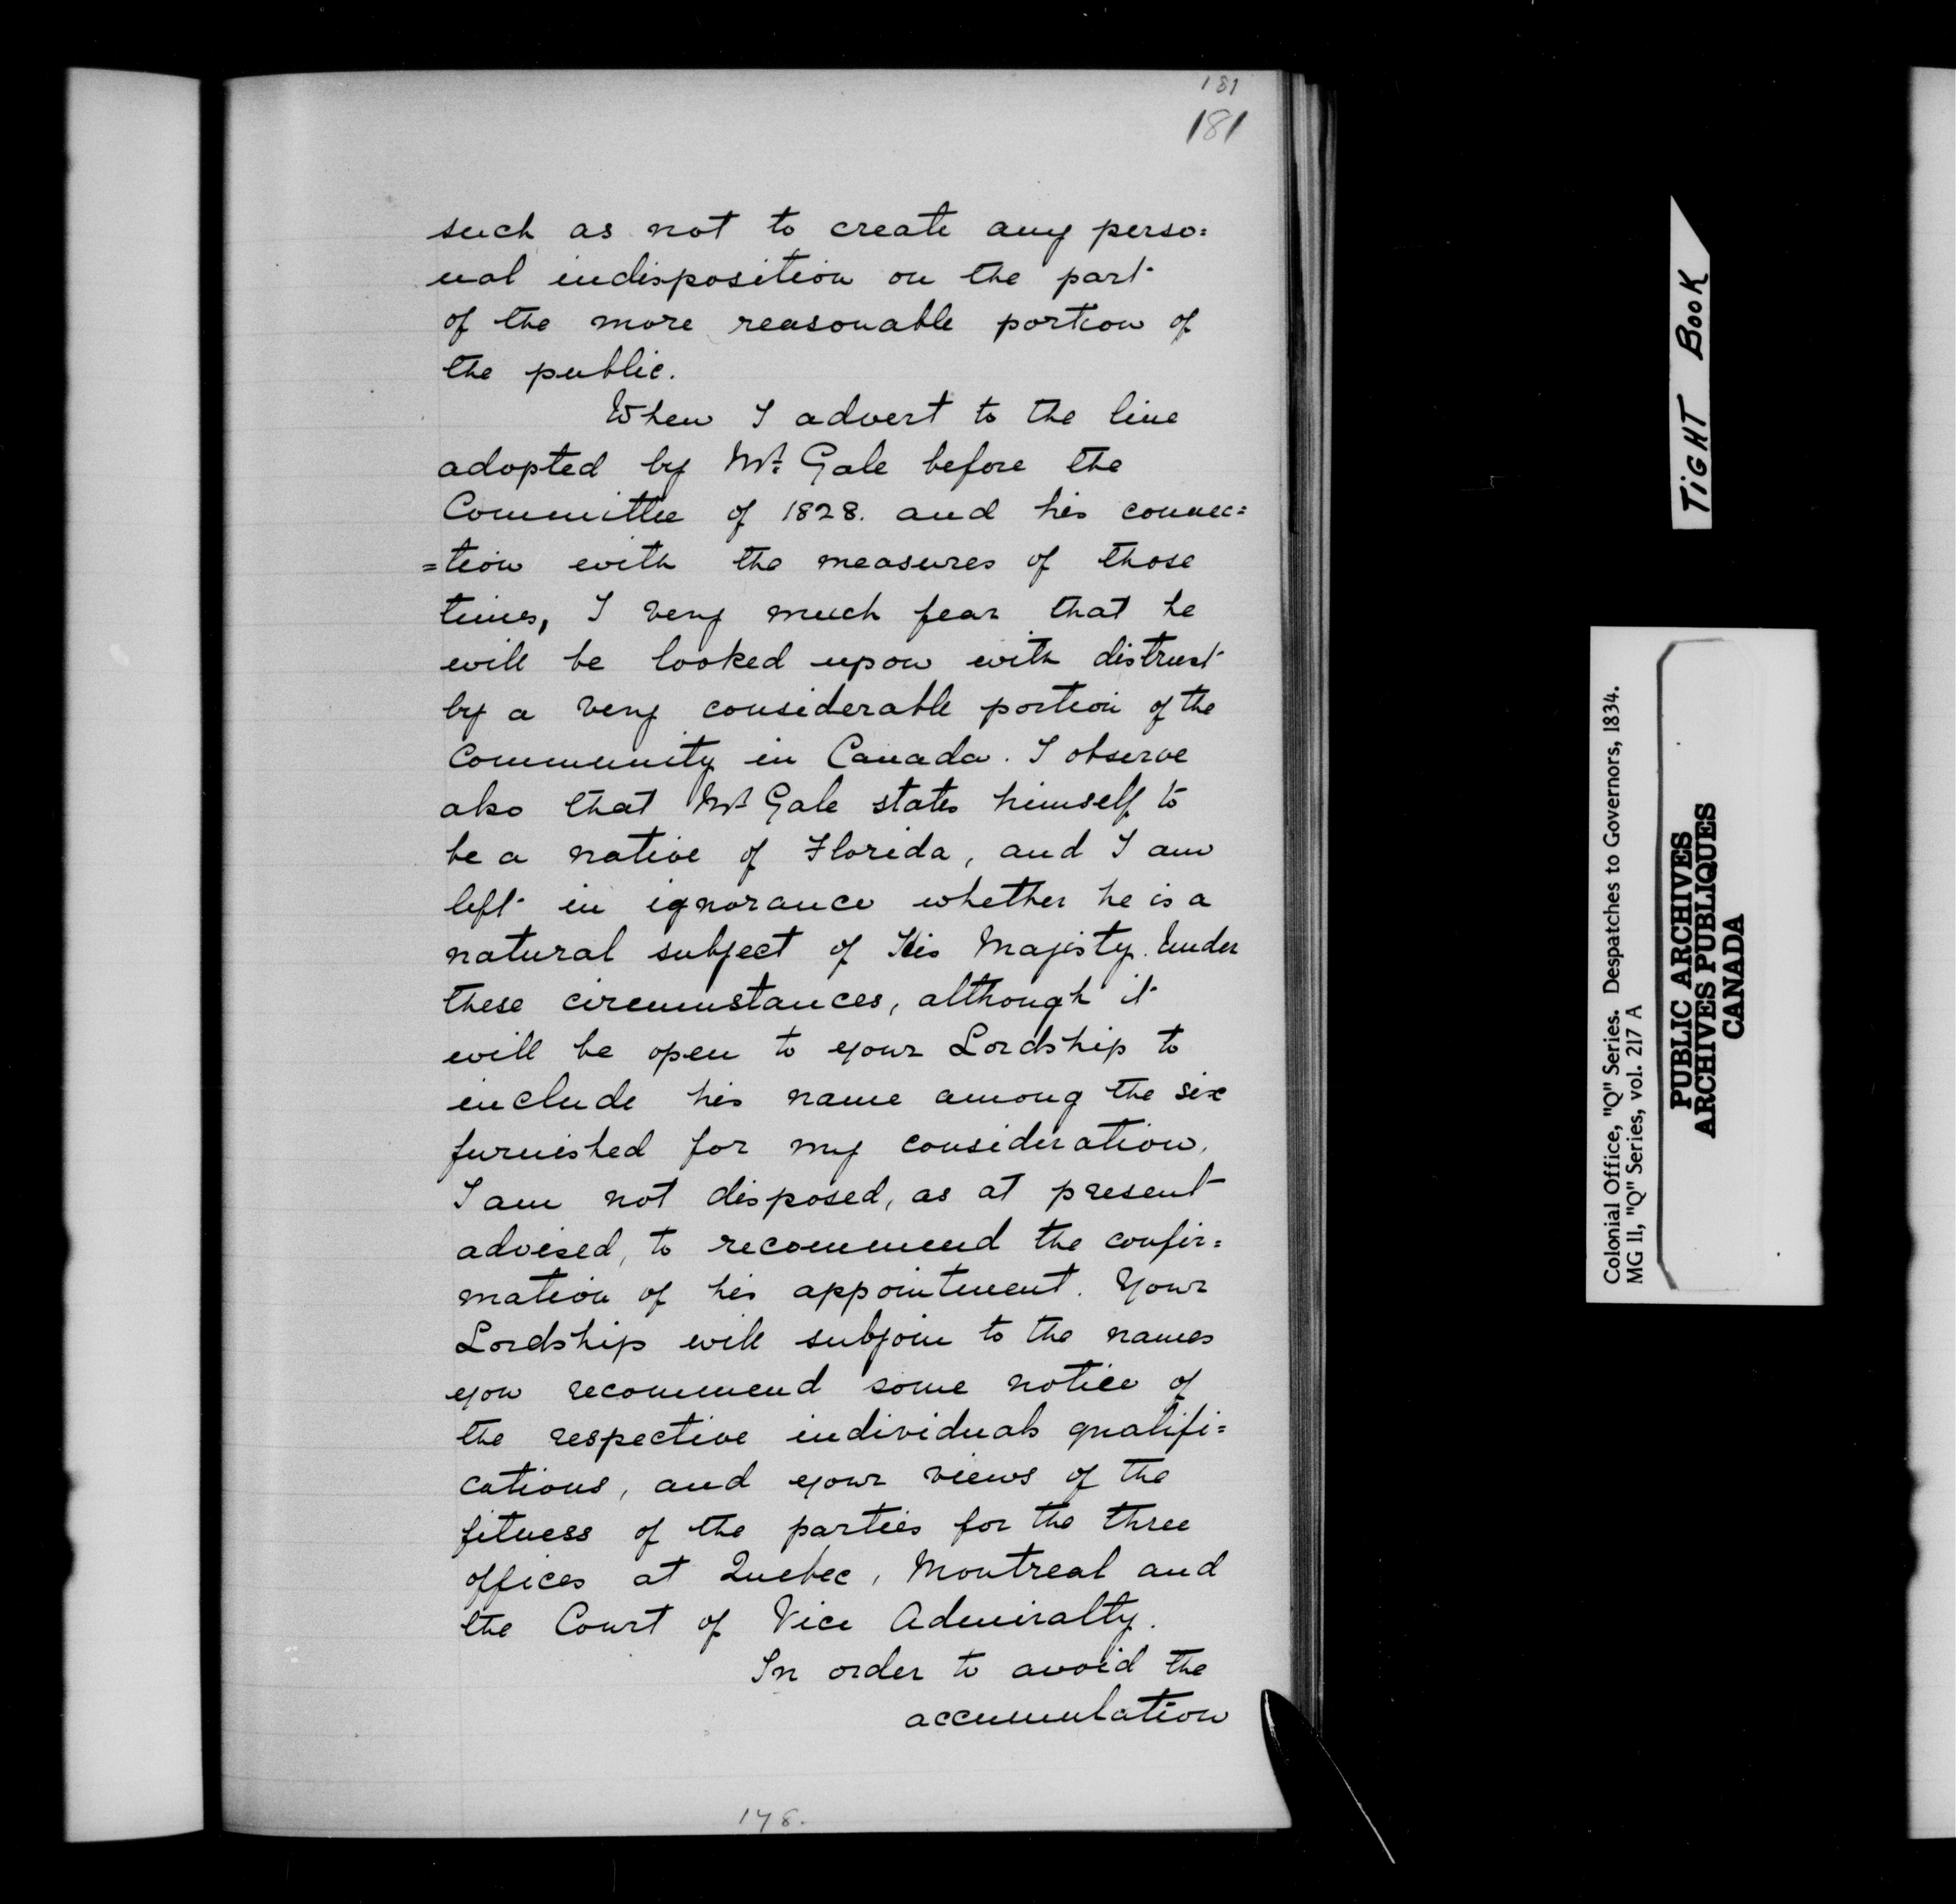 181
181
such as not to create any perso=
nal indisposition on the part
of the more reasonable portion of
the public.
When I advert to the line
adopted by Mr. Gale before the
Committee of 1828. and his connec=
=tion with the measures of those
times, I very much fear that he
will be looked upon with distrust
by a very considerable portion of the
Community in Canada. I observe
also that Mr Gale states himself to
be a native of Florida, and I am
left in ignorance whether he is a
natural subject of His Majisty. Under
these circumstances, although it
will be open to your Lordship to
include his name among the six
furnished for my consideration,
I am not disposed, as at present
advised, to recommend the confir=
mation of his appointment. Your
Lordship will subjoin to the names
you recommend some notice of
the respective individuals qualifi=
cations, and your views of the
fitness of the parties for the three
offices at Quebec, Montreal and
the Court of Vice Admiralty.
In order to avoid the
accumulation
178.
TIGHT BOOK
Colonial Office, "Q" Series. Despatches to Governors, 1834.
MG 11, "Q" Series, vol. 217 A
PUBLIC ARCHIVES
ARCHIVES PUBLIQUES
CANADA